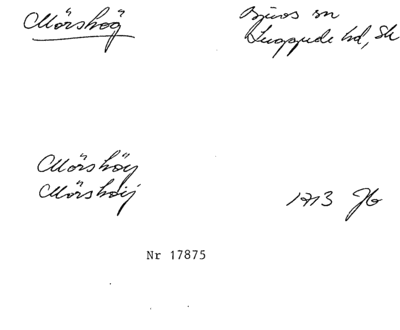 Mörshög
Bjuvs sn
Luggude hd, Sk
Mörshöy
Mörshöij
1713 Jb
Nr 17875